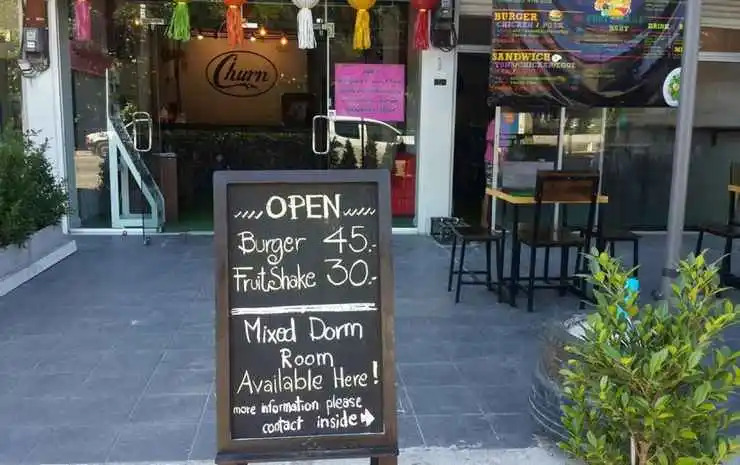 Churn
BURGER
CHICKEN / PORK
SANDWICH
OPEN
Burger 45.-
FruitShake 30.-
Mixed Dorm
Room
Available Here!
more information please
contact inside